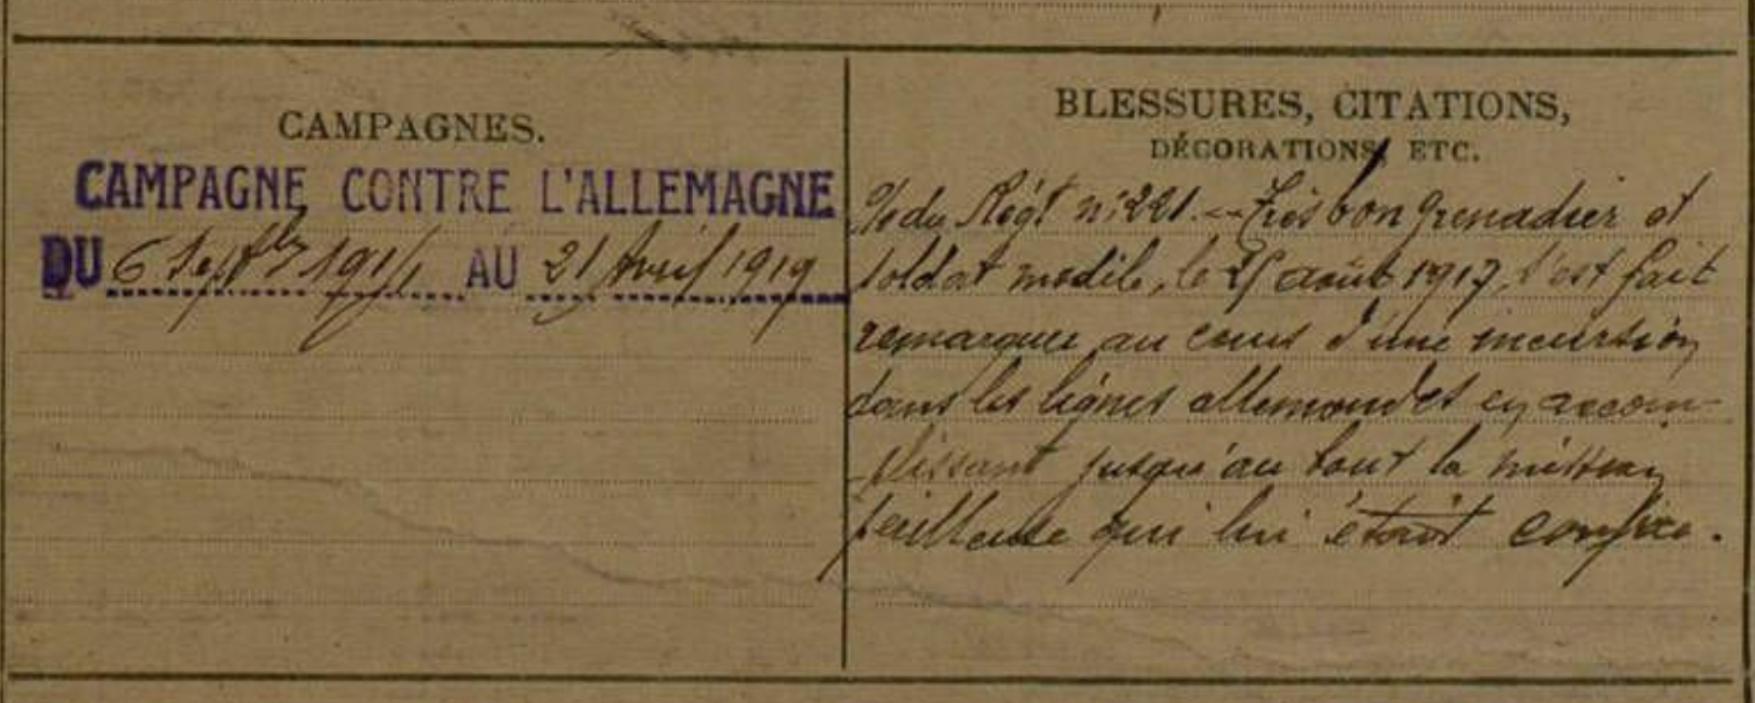 CAMPAGNES.
CAMPAGNE CONTRE L'ALLEMAGNE
DU 6 Septbre 1914 AU 21 Avril 1919
BLESSURES, CITATIONS,
DÉCORATIONS, ETC.
O/ du Régt n: 221. -- Très bon grenadier et
soldat modèle, le août 1917, s'est fait
remarquer au cours d'une incursion
dans les lignes allemandes en accom-
plissant jusqu'au bout la mission
périlleuse qui lui était confiée.